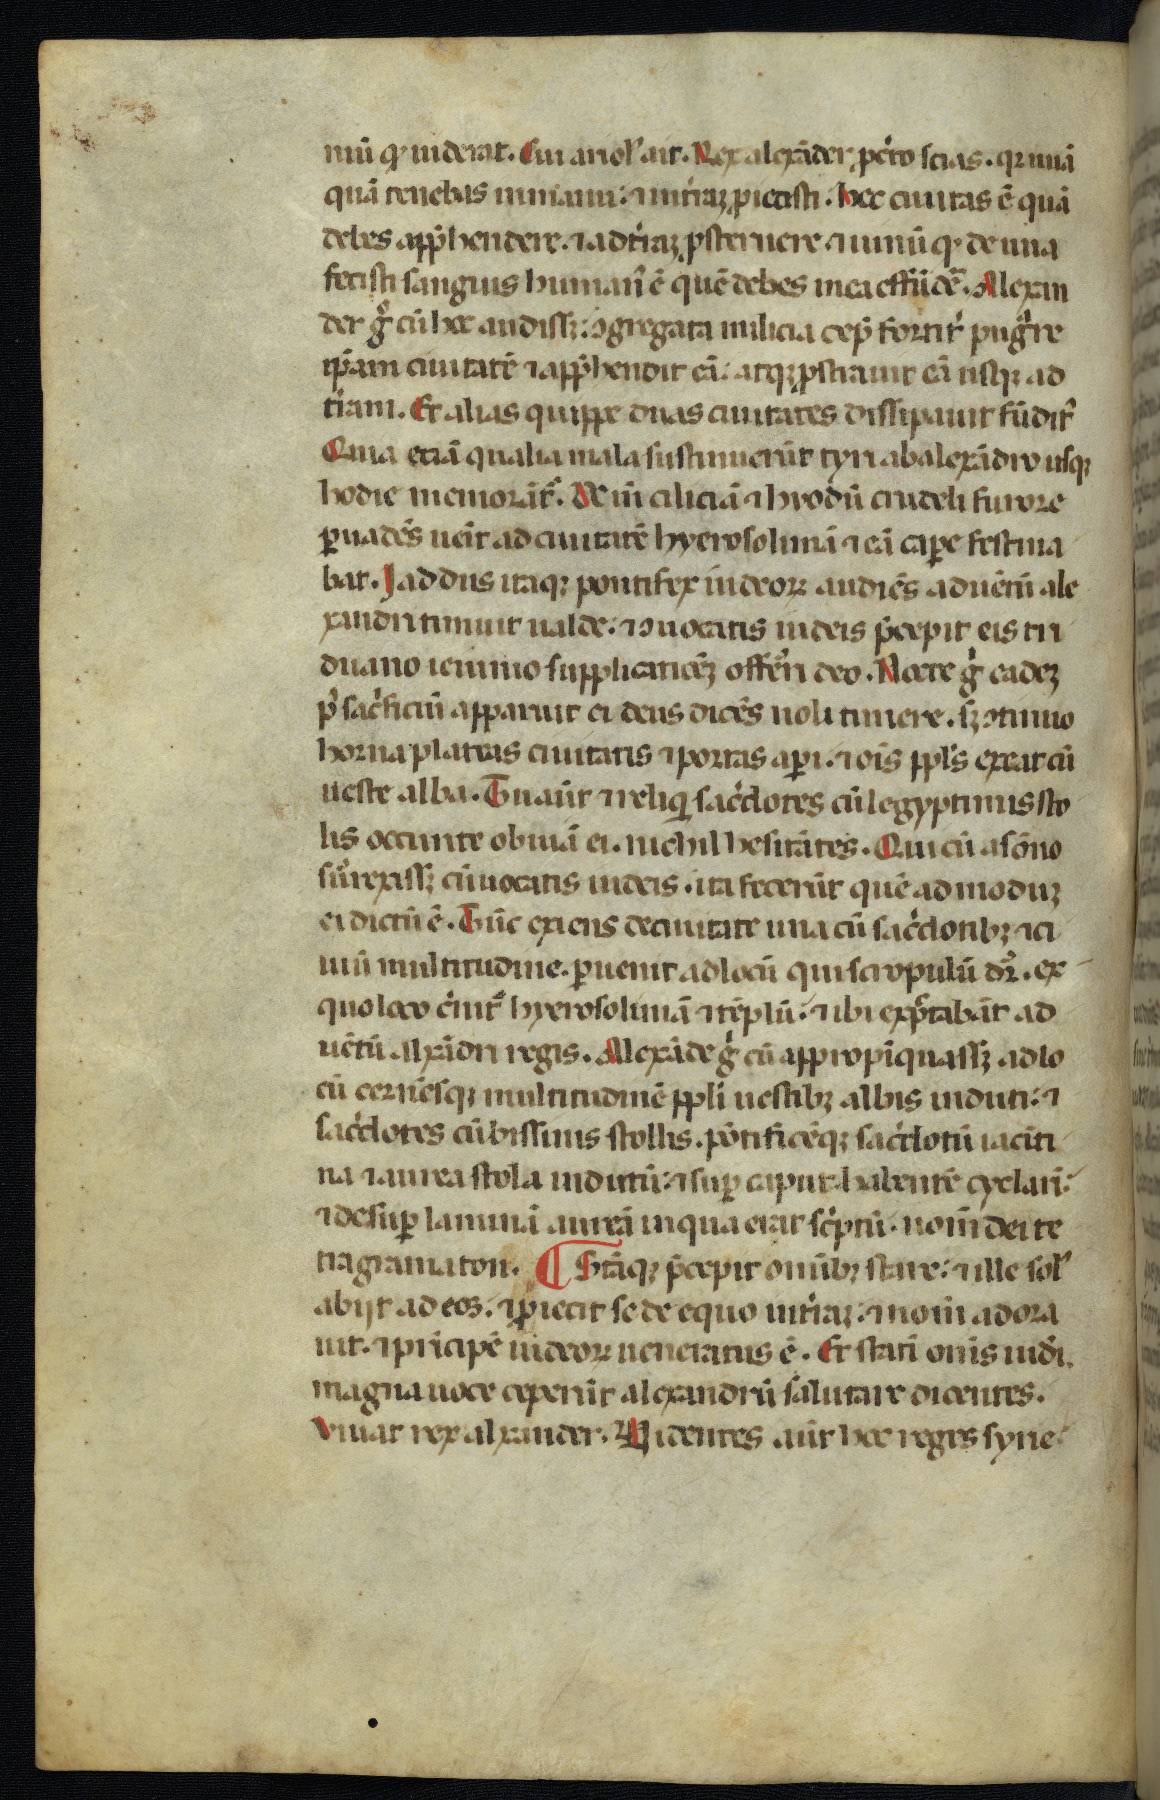 niū qͥ uiderat. Cui ariol᷒ ait. Rex alexāder, ꝑcͥto scias. qꝛ uuā
quā tenebas in manu: ⁊ in tͥraꝫ ꝓiecisti. hec ciuitas ē quā
debes app̄hendere. ⁊ ad tͥraꝫ ꝓsternere ⁊ uinū qͥ de uua
fecisti sanguis human᷒ ē quē debes in ea effūdeͬ. Alexan
der gͦ cū hec audissꝫ: ꝯgregata milicia cep̄ fortitͥ pug̃re
ip̄am ciuitatē ⁊ app̄hendit eā: atqꝫ ꝓstrauit eā usqꝫ ad
tͥram. Et alias quippe duas ciuitates dissipauit fūditͥ
Quia etiā qualia mala sustinuerūt tyri ab alexādro usqꝫ
hodie memorātͬ. De in ciliciā ⁊ hrodū crudeli furore
ꝑuadēs uēit ad ciuitatē hyerosolimā ⁊ eā caꝑe festina
bat. Jaddus itaqꝫ pontifex iudeoꝝ audiēs aduētū ale
xandri timuit ualde: ⁊ ꝯuocatis iudeis p̄cepit eis tri
duano ieiunio supplicationēꝫ offērri deo. Nocte gͦ eadeꝫ
pͦ sacͥficiū apparuit ei deus dicēs noli timere. sꝫ ꝯtinuo
horna plateas ciuitatis ⁊ portas aꝑi. ⁊ oīs ppl̄s exeat cū
ueste alba. Tu aūt ⁊ reliqͥ sacͥdotes cū legyptimis sto
lis occurrite obuiā ei. nichil hesitātes. Qui cū a sōno
surrexissꝫ cūuocatis iudeis. ita fecerūt quē ad moduꝫ
ei dictū ē. Tūc exiens de ciuitate una cū sacͥdotibꝫ ⁊ ci
uiū multitudine. ꝑuenit ad locū qui scropulū dͬ. ex
quo loco cͥnitͬ hyerosolimā ⁊ tēplū: ⁊ ibi expc̄tabāt ad
uētū alxādri regis. Alexāde gͦ cū appropīquassꝫ ad lo
cū cernēsqꝫ multitudinē ppli uestibꝫ albis induti: ⁊
sacͥdotes cū bissinis stollis. pōtificēqꝫ sacͥdotū iaciti
na ⁊ aurea stola indutū: ⁊ suꝑ caput habentē cyclarī:
⁊ desuꝑ laminā aureā in qua erat sc̄ptū. nom̄ dei te
tragramaton. ¶ Statīqꝫ p̄cepit omībꝫ stare: ⁊ ille sol᷒
abijt ad eos. ⁊ ꝓiecit se de equo in tͥraꝫ: ⁊ nom̄ adora
uit. ⁊ pͥncipē iudeoꝝ ueneratus ē. Et statī omīs iudi.
magna uoce ceperūt alexandrū salutare dicentes.
Viuat rex alxander. Videntes aūt hec reges syrie